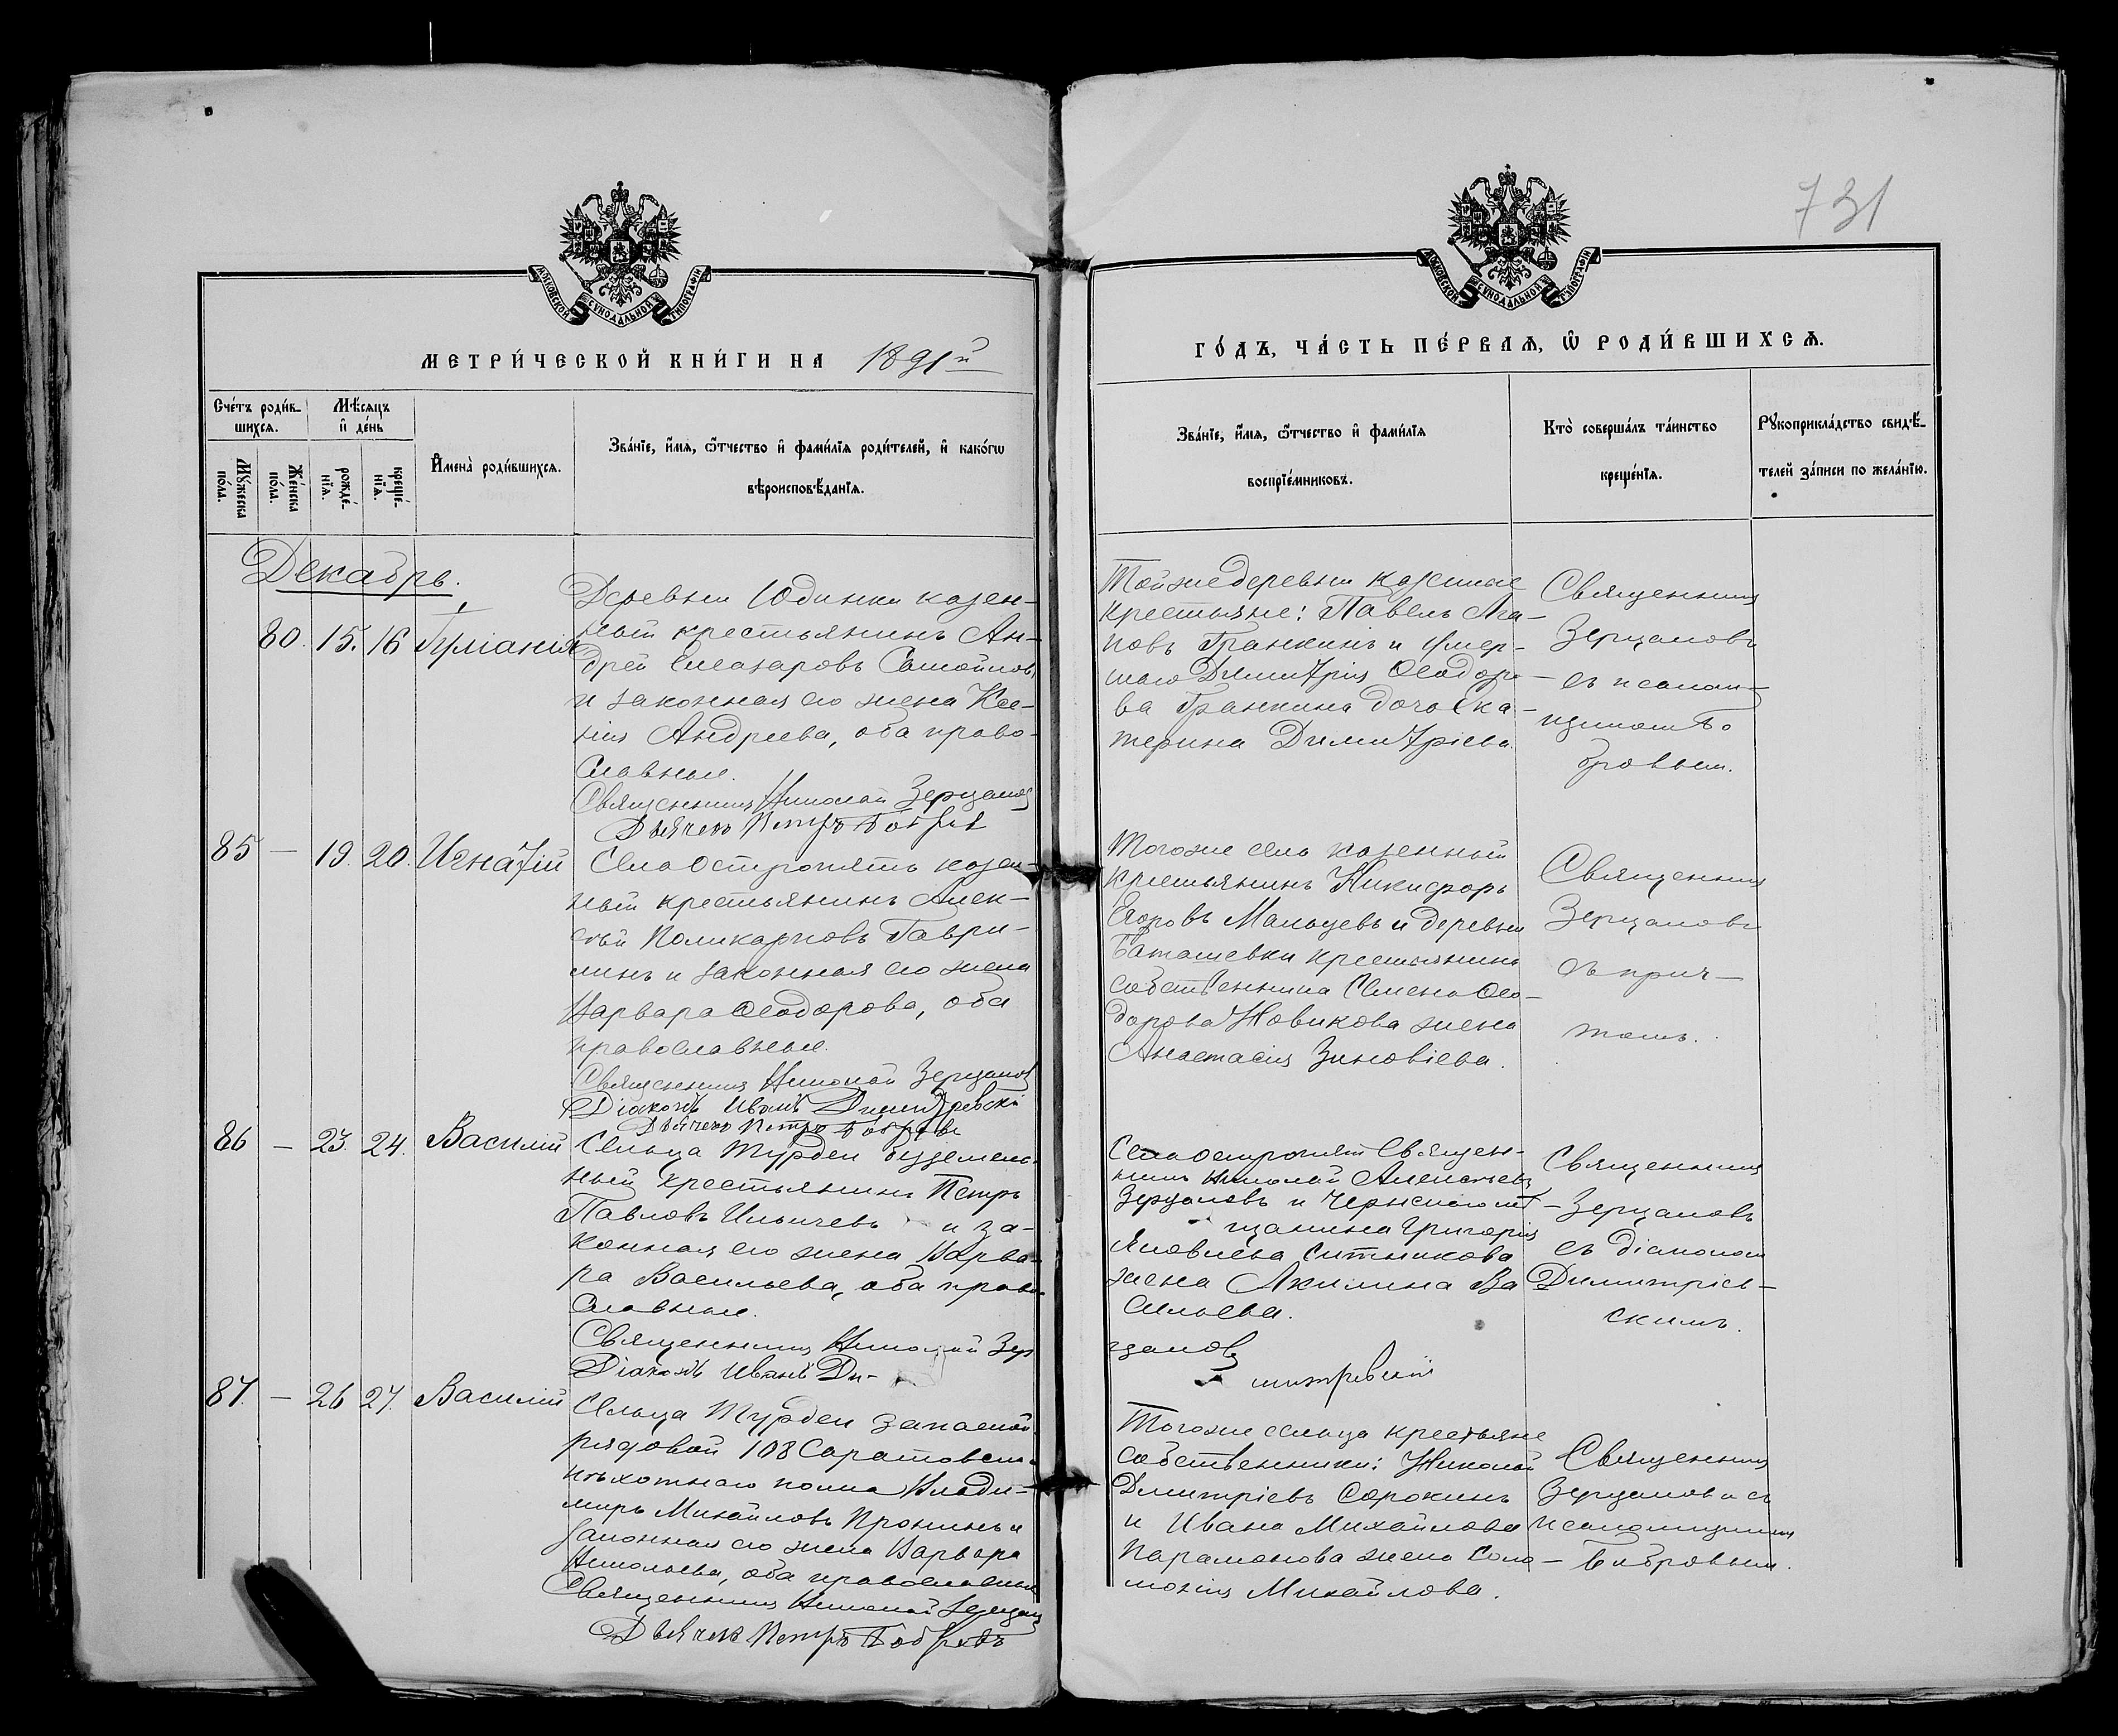 731
МОСКОВСКОЙ СУНОДАЛЬНОЙ ТИПОГРАФІИ
МОСКОВСКОЙ СУНОДАЛЬНОЙ ТИПОГРАФІИ
МЕТРИ́ЧЕСКОЙ КНИ́ГИ НА 1891й
ГО́ДЪ, ЧА́СТЬ ПЕ́РВАѦ, Ѡ РОДИ́ВШИХСѦ.
Сче́тъ роди́в-
шихсѧ.
Мꙋ́жеска по́ла.
Же́нска по́ла.
Мѣ́сѧцъ
и҆ де́нь
рожде́-
нїѧ.
креще́-
нїѧ.
И҆мена̀ роди́вшихсѧ.
Зва́нїе, и҆́мѧ, ѻ҆́тчество и҆ фами́лїѧ роди́телей, и҆ како́гѡ
вѣроисповѣ́данїѧ.
Зва́нїе, и҆́мѧ, ѻ҆́тчество и҆ фами́лїѧ
воспрїе́мниковъ.
Кто̀ соверша́лъ та́инство
креще́нїѧ.
Рꙋкоприкла́дство свидѣ́-
телей за́писи по жела́нїю.
Декабрь.
80. 15. 16 Іуліанія
Деревни Юдинки казен-
ный крестьянинъ Ан-
дрей Елеазаровъ Самойлов
и законная его жена Ксе-
нія Андреева, оба право-
славные.
Священникъ Николай Зерцалов
Дьячекъ Петръ Бобровъ
Тойже деревни казенные
крестьяне: Павелъ Ага-
повъ Гранкинъ и умер-
шаго Димитрія Ѳеодоро-
ва Гранкина дочь Ека-
терина Димитріева.
Священникъ
Зерцаловъ
съ псалом-
щикомъ Бо-
бровым.
85 — 19. 20. Игнатій
Села Остропятъ казен-
ный крестьянинъ Алек-
сѣй Поликарповъ Гаври-
линъ и законная его жена
Варвара Ѳеодорова, оба
православные.
Священникъ Николай Зерцалов
Діаконъ Иванъ Димитревскій
Дьячекъ Петръ Бобровъ
Тогоже села казенный
крестьянинъ Никифоръ
Егоровъ Мальцевъ и деревни
Баташевки крестьянина
собственника Семена Ѳео-
дорова Новикова жена
Анастасія Зиновіева.
Священникъ
Зерцаловъ
съ прич-
томъ.
86 — 23. 24. Василій
Сельца Турдеи безземель-
ный крестьянинъ Петръ
Павловъ Ильичевъ и за-
конная его жена Варва-
ра Васильева, оба право-
славные.
Священникъ Николай Зер
цалов
Діаконъ Иванъ Ди-
митревскій
Села Остропятъ Священ-
никъ Николай Алексѣевъ
Зерцаловъ и
щанина Григорія
Яковлева Ситникова
жена Акилина Ва
сильева.
Священникъ
Зерцаловъ
съ діакономъ
Димитріев-
скимъ.
87. — 26 27. Василій
Сельца Турдеи запасной
рядовой 108 Саратовска
пѣхотнаго полка Влади-
миръ Михайловъ Пронинъ и
законная его жена Варвара
Николаева, оба православные
Священникъ Николай Зерцалов
Дьячекъ Петръ Бобровъ
Тогоже сельца крестьяне
собственники: Николай
Димитріевъ Сорокинъ
и Ивана Михайлова
Парамонова жена Соло-
монія Михайлова.
Священникъ
Зерцаловъ съ
псаломщикомъ
Бобровым.